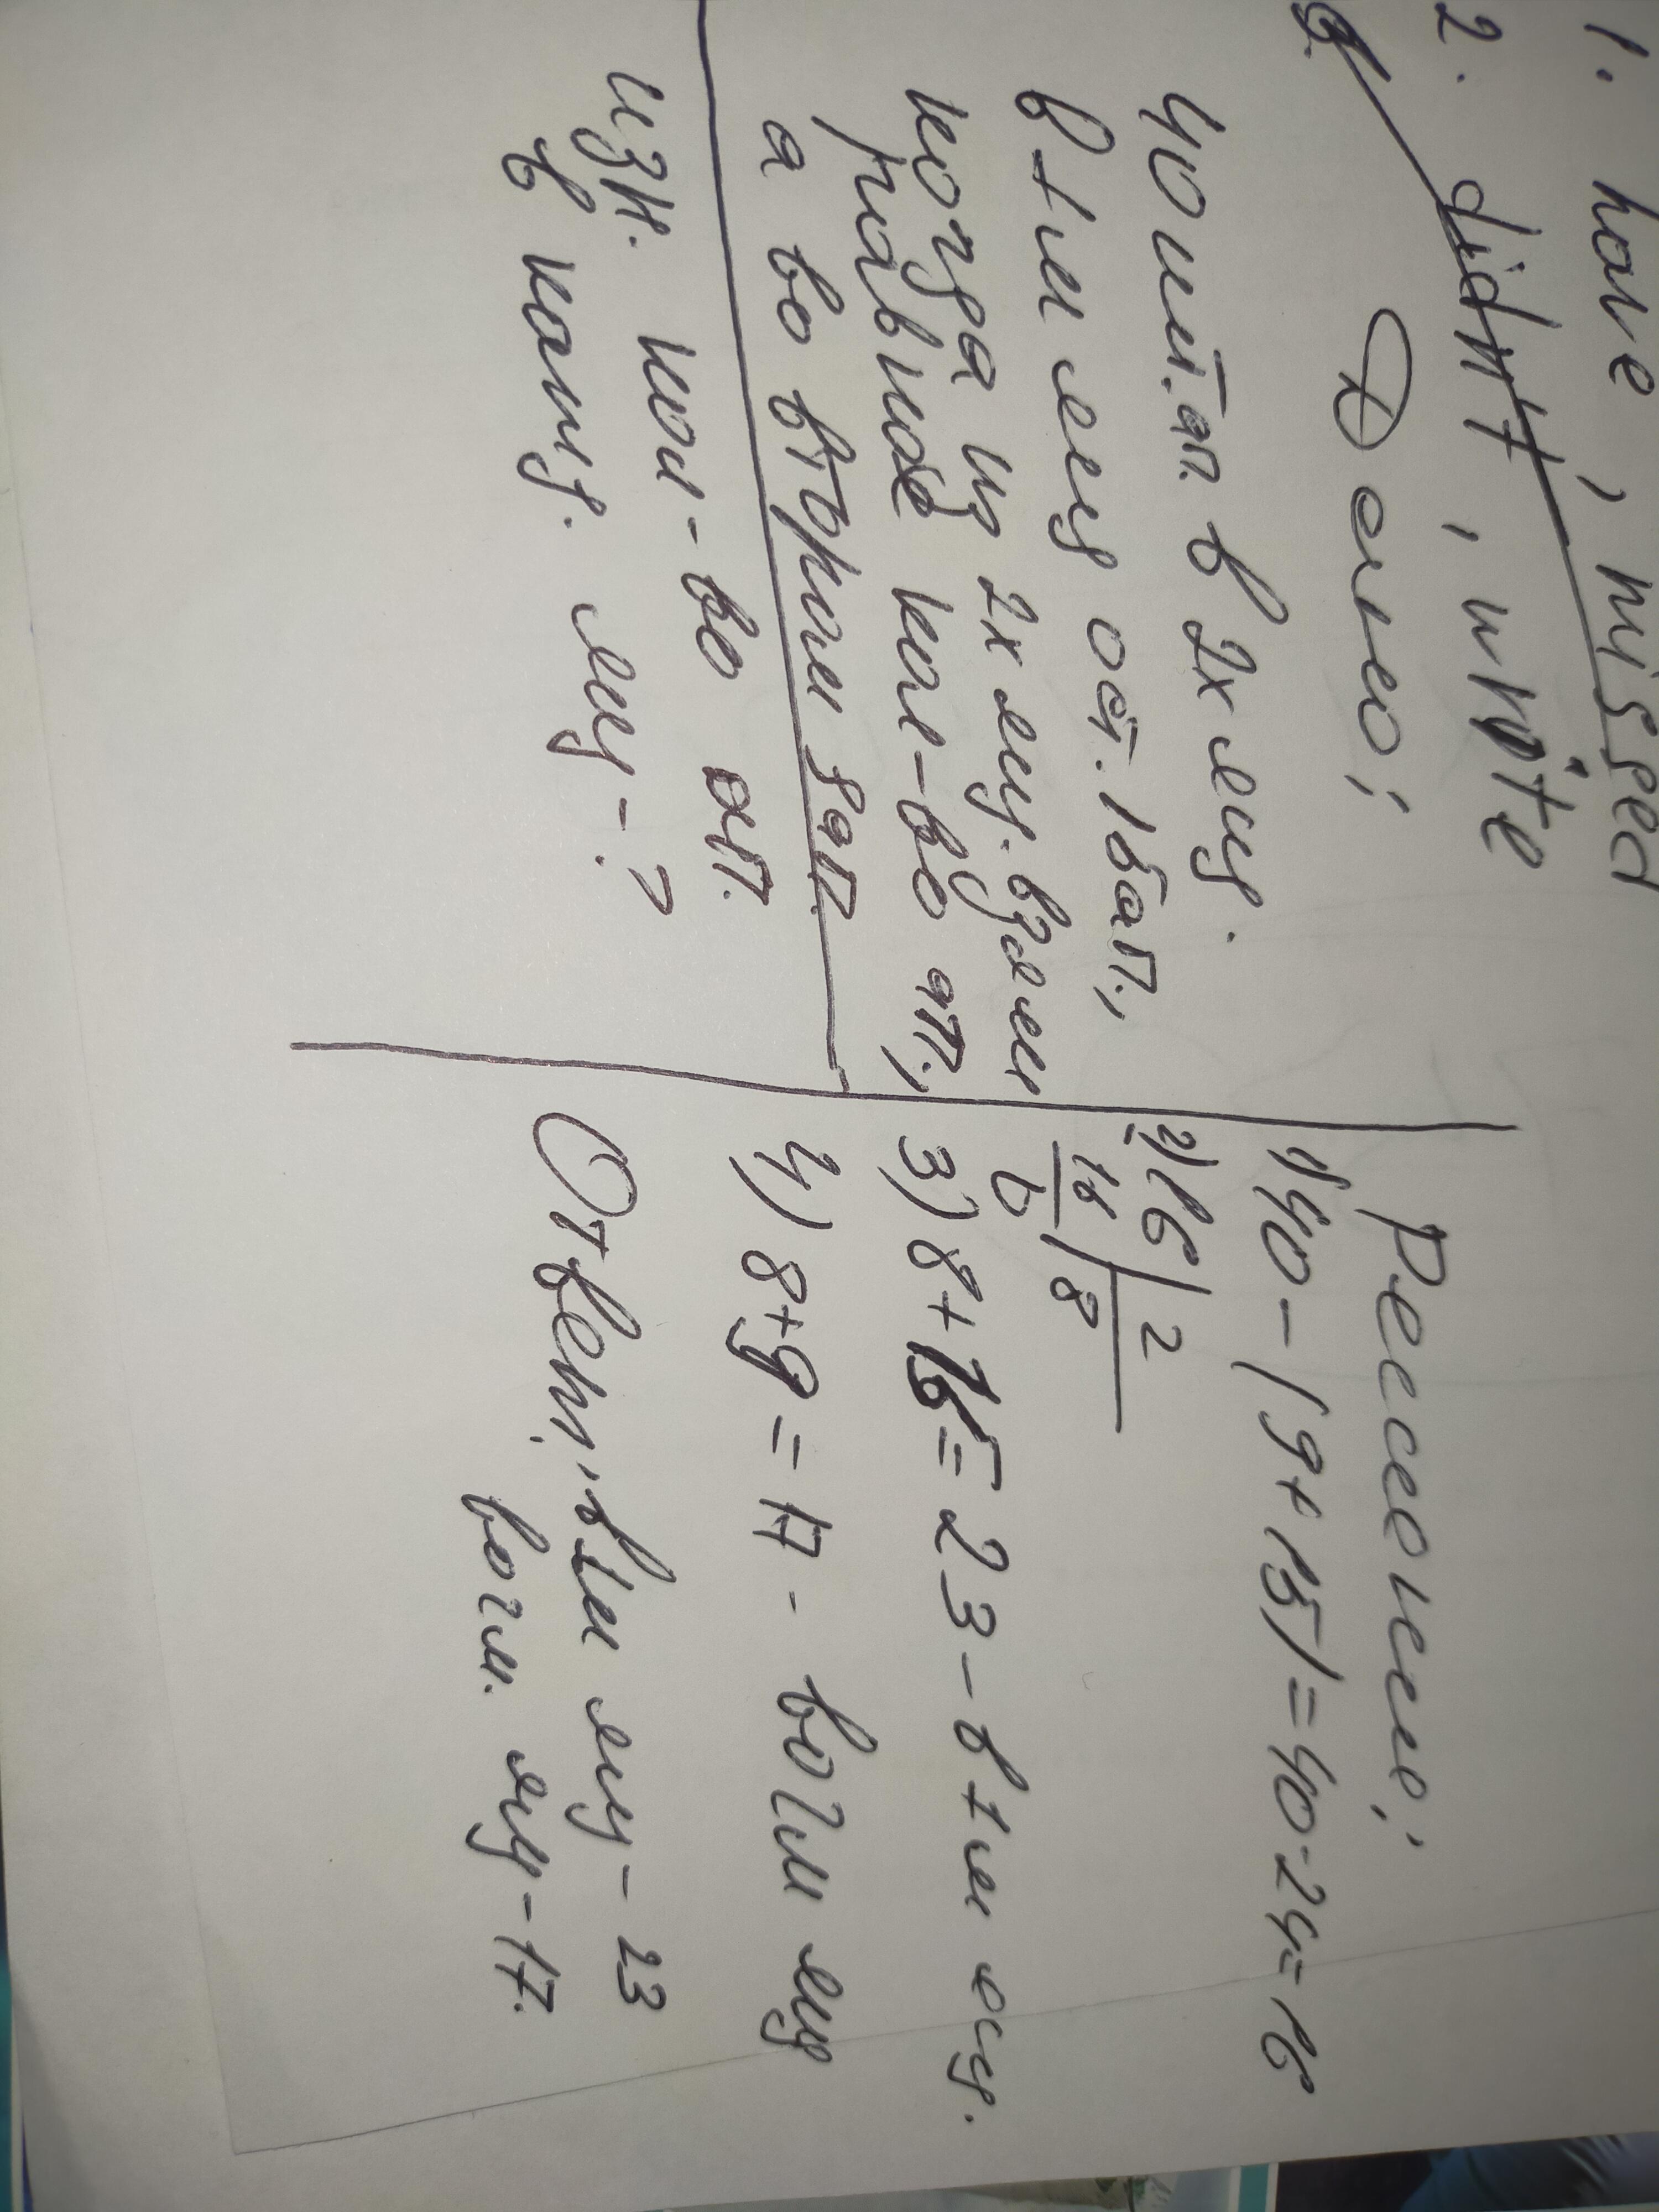 1. have, missed
2. didn't, write
Дано:
40 шт.ап. в 2х ящ.
В 1м ящ ост. 15ап.,
когда из 2х ящ. взяли
равное кол-во ап.,
а во втором 9ап.
изн. кол-во ап.
в кажд. ящ - ?
Рассение:
1) 40 - (9+15) = 40-24=16
2) 16 | 2
- 16 | 8
0
3) 8+15=23 - в 1м ящ.
4) 8+9=17 - во 2м ящ
Ответ: в 1м ящ - 23
во 2м. ящ - 17.